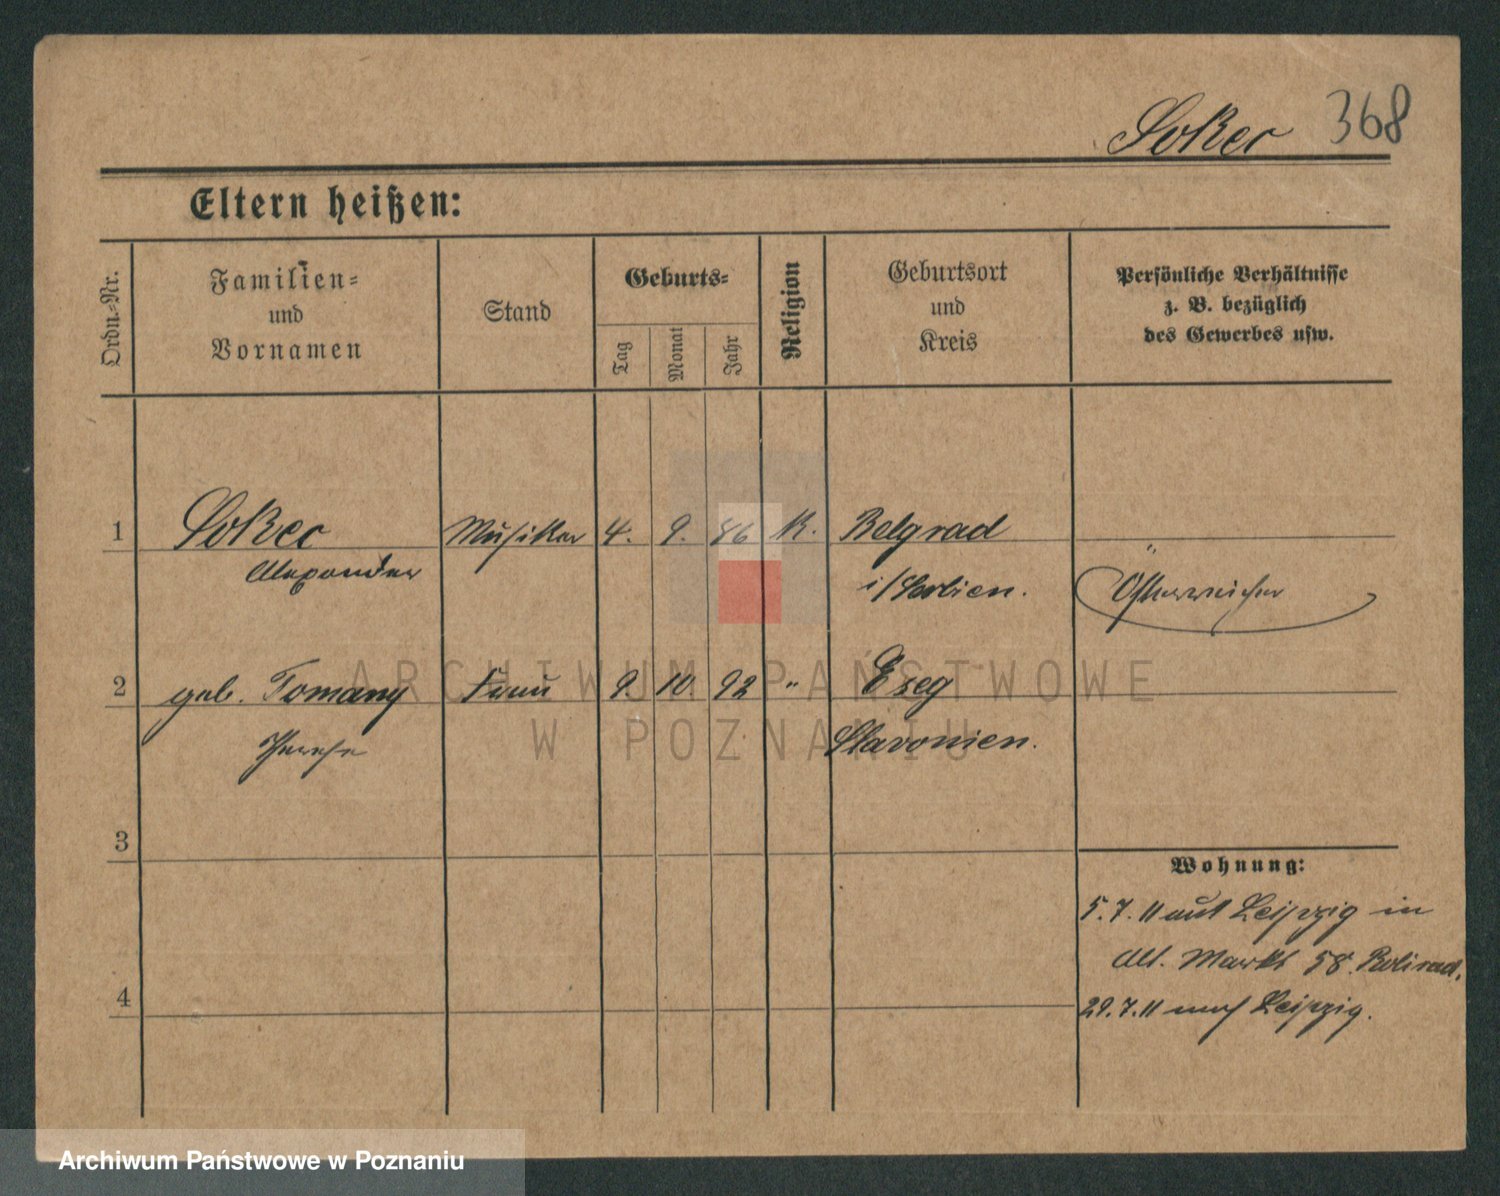 Sokec 368
Eltern heißen:
Ordn.-Nr.
Familien-
und
Vornamen
Stand
Geburts-
Tag
Monat
Jahr
Religion
Geburtsort
und
Kreis
Persönliche Verhältnisse
z. B. bezüglich
des Gewerbes usw.
1 Sokec Musiker 4. 9. 86 K. Belgrad
Alexander i/Serbien. Österreicher
2 geb. Tomany Frau 9. 10 92 " Eseg
Therese Slavonien.
3
Wohnung:
5.7.11 aus Leipzig in
Alt. Markt 58.
4
29.7.11 nach Leipzig.
ARCHIWUM PAŃSTWOWE
W POZNANIU
Archiwum Państwowe w Poznaniu